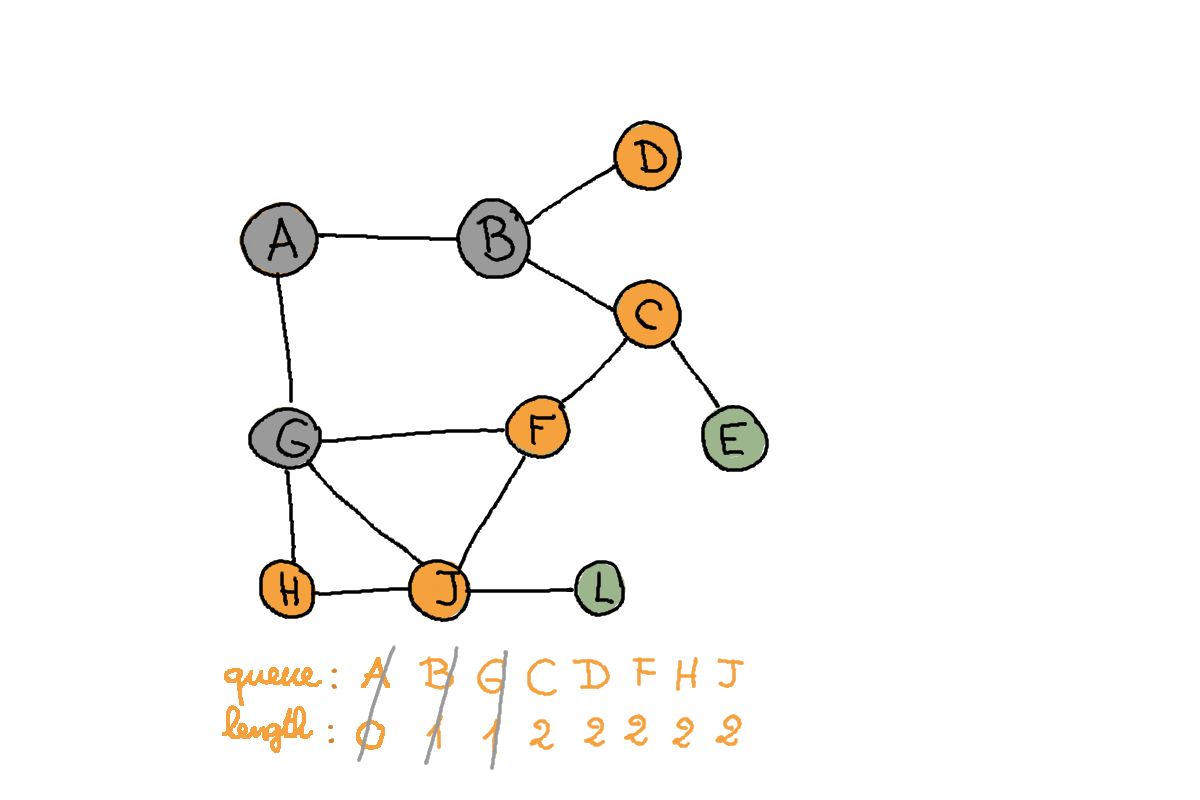 D
A B
C
G F E
H J L
queue: A B G C D F H J
length: 0 1 1 2 2 2 2 2